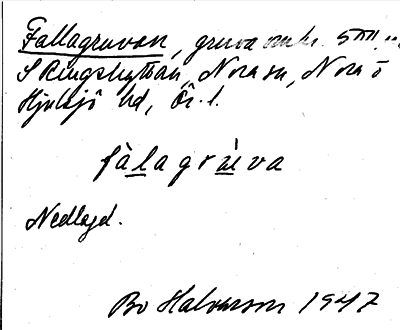 Fallagruvan, gruva omkr. 500 m
S Ringshyttan, Nora sn, Nora o
Hjulsjö bd, Ör. l.
fàlagrúva
Nedlagd.
Bo Halvarson 1947